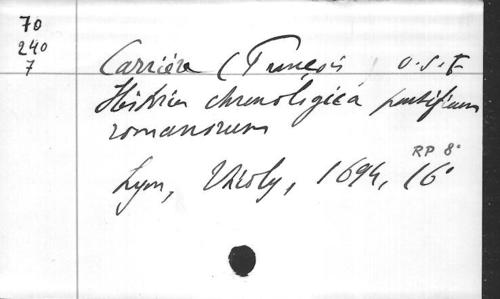 70
240
7
Carrière (François, O.S.F.
Historia chronologica pontificum
romanorum
RP 8°
Lyon, 1694, 16°